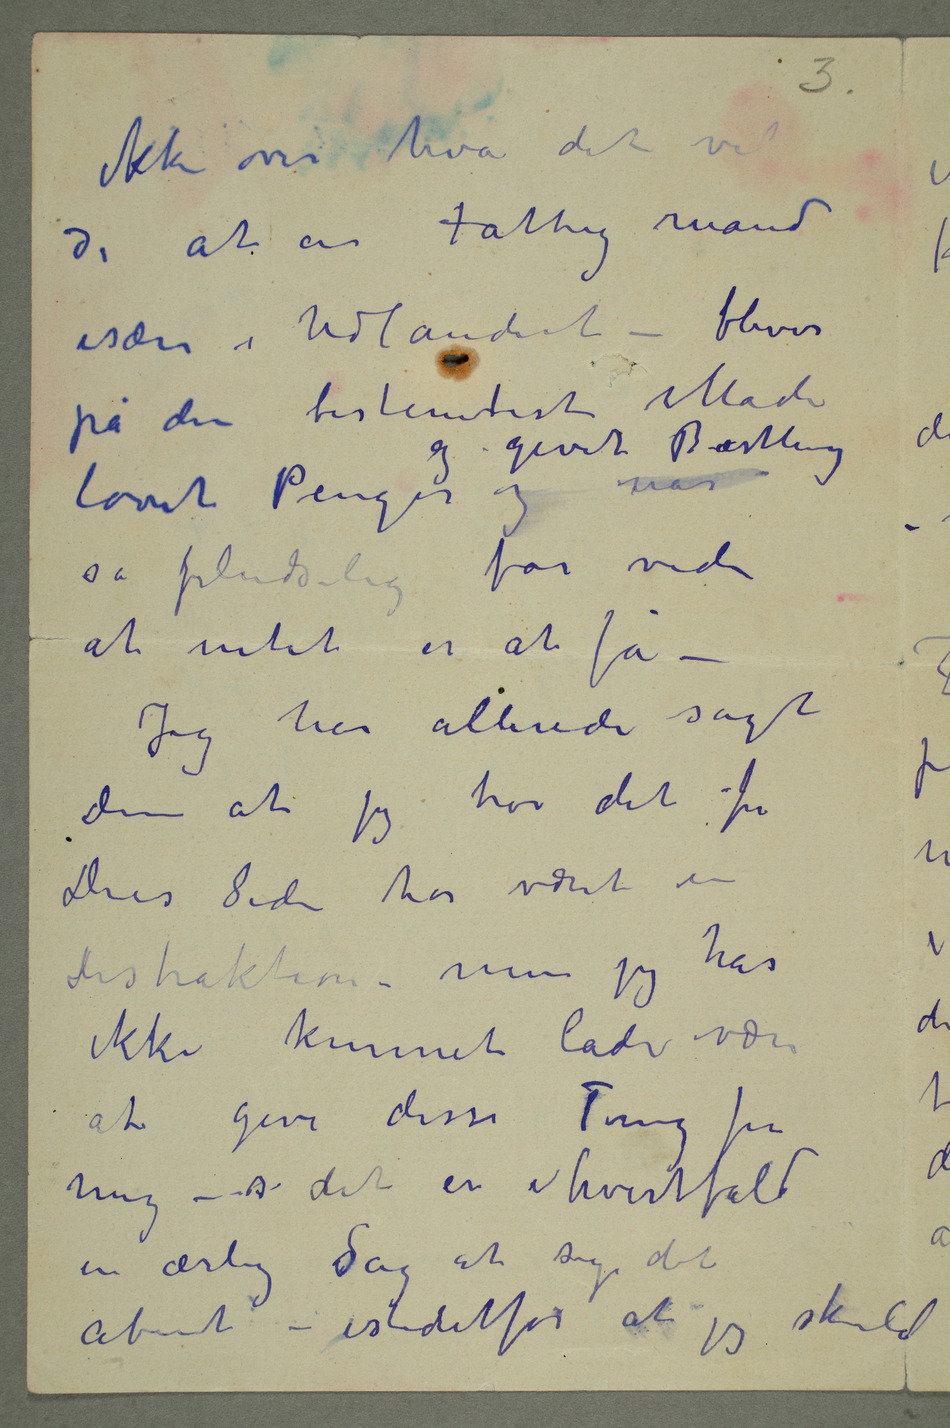 3.
ikke over hva det vil
si at en fattig mand
især i Udlandet – bliver
på den bestemteste Måde
og givet Bestilling
lovet Penger og når
så pludselig får vide
at intet er at få –
Jeg har allerede sagt
Dem at jeg tror det fra
Deres Side har været en
Distraktion – men jeg har
ikke kunnet lade være
at give disse Ting fra
mig – så det er ihvertfald
en ærlig Sag at sige det
åbent – istedetfor at jeg skuld